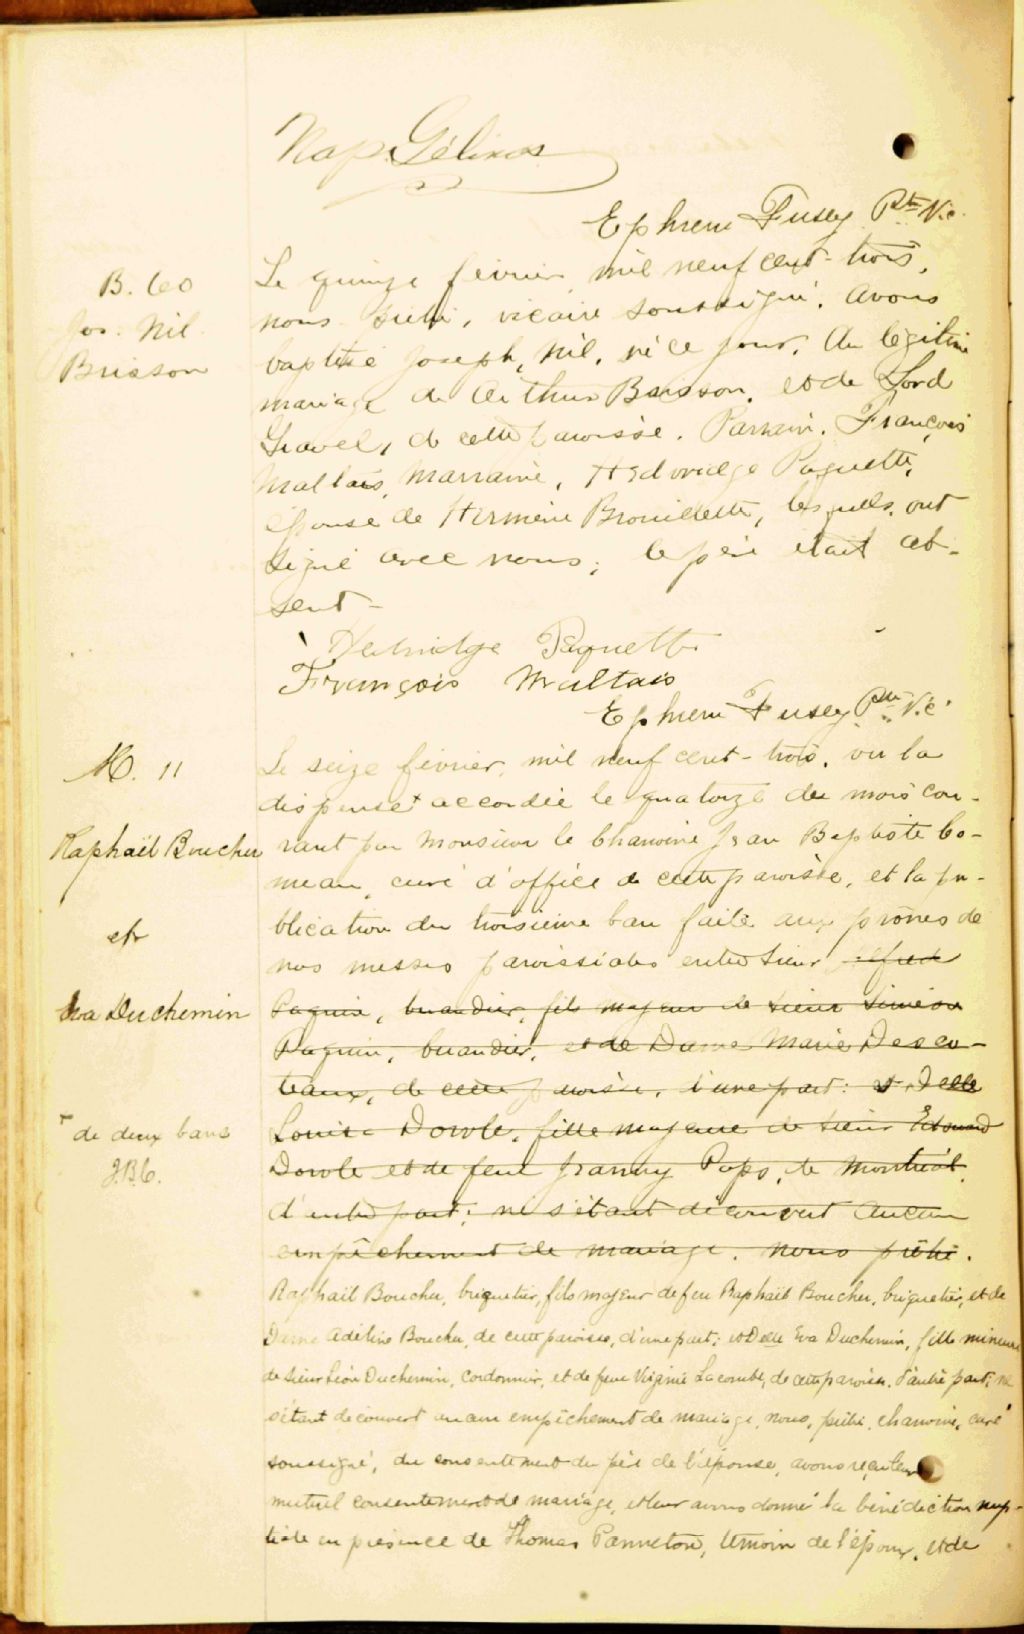 Nap. Gélinas
Ephrem Fusey Ptre Vic.
B. 60
Jos. Nil
Brisson
Le quinze février mil neuf cent-trois,
nous prêtre, vicaire soussigné, avons
baptisé Joseph, Nil, né ce jour, du légitime
mariage de Arthur Brisson, et de
Gravel, de cette paroisse. Parrain, François
Maltais, marraine, Hedwidge Paquette,
épouse de Herméné Brouillette, lesquels ont
signé avec nous; le père était ab-
sent-
Hedwidge Paquette
François Maltais
Ephrem Fusey Ptre Vic.
M. 11
Raphaël Boucher
et
Eva Duchemin
+ de deux bans
J.B.C.
Le seize février, mil neuf cent-trois, vu la
dispense+ accordée le quatorze du mois cou-
rant par Monsieur le Chanoine Jean Baptiste Co-
meau, curé d'office de cette paroisse, et la pu-
blication du troisième ban faite aux prônes de
nos messes paroissiales entre Sieur
Paquin, buandier, fils majeur de Sieur Siméon
Paquin, buandier, et de Dame Marie Desco-
teaux, de cette paroisse, d'une part: et Delle
Louisa Dowle, fille majeure de Sieur Edouard
Dowle et de feue Franny Pops, de Montréal,
d'autre part; ne s'étant découvert aucun
empêchement de mariage, nous prêtre.
Raphaël Boucher, briquetier, fils majeur de feu Raphaël Boucher, briquetier, et de
Dame Adéline Boucher, de cette paroisse, d'une part; et Delle Eva Duchemin, fille mineure
de Sieur Léon Duchemin, cordonnier, et de feue Virginie Lacombe, de cette paroisse, d'autre part; ne
s'étant découvert aucun empêchement de mariage, nous, prêtre, chanoine, curé
soussigné, du consentement du père de l'épouse, avons reçu leur
mutuel consentement de mariage, et leur avons donné la bénédiction nup-
tiale en présence de Thomas Panneton, témoin de l'époux, et de